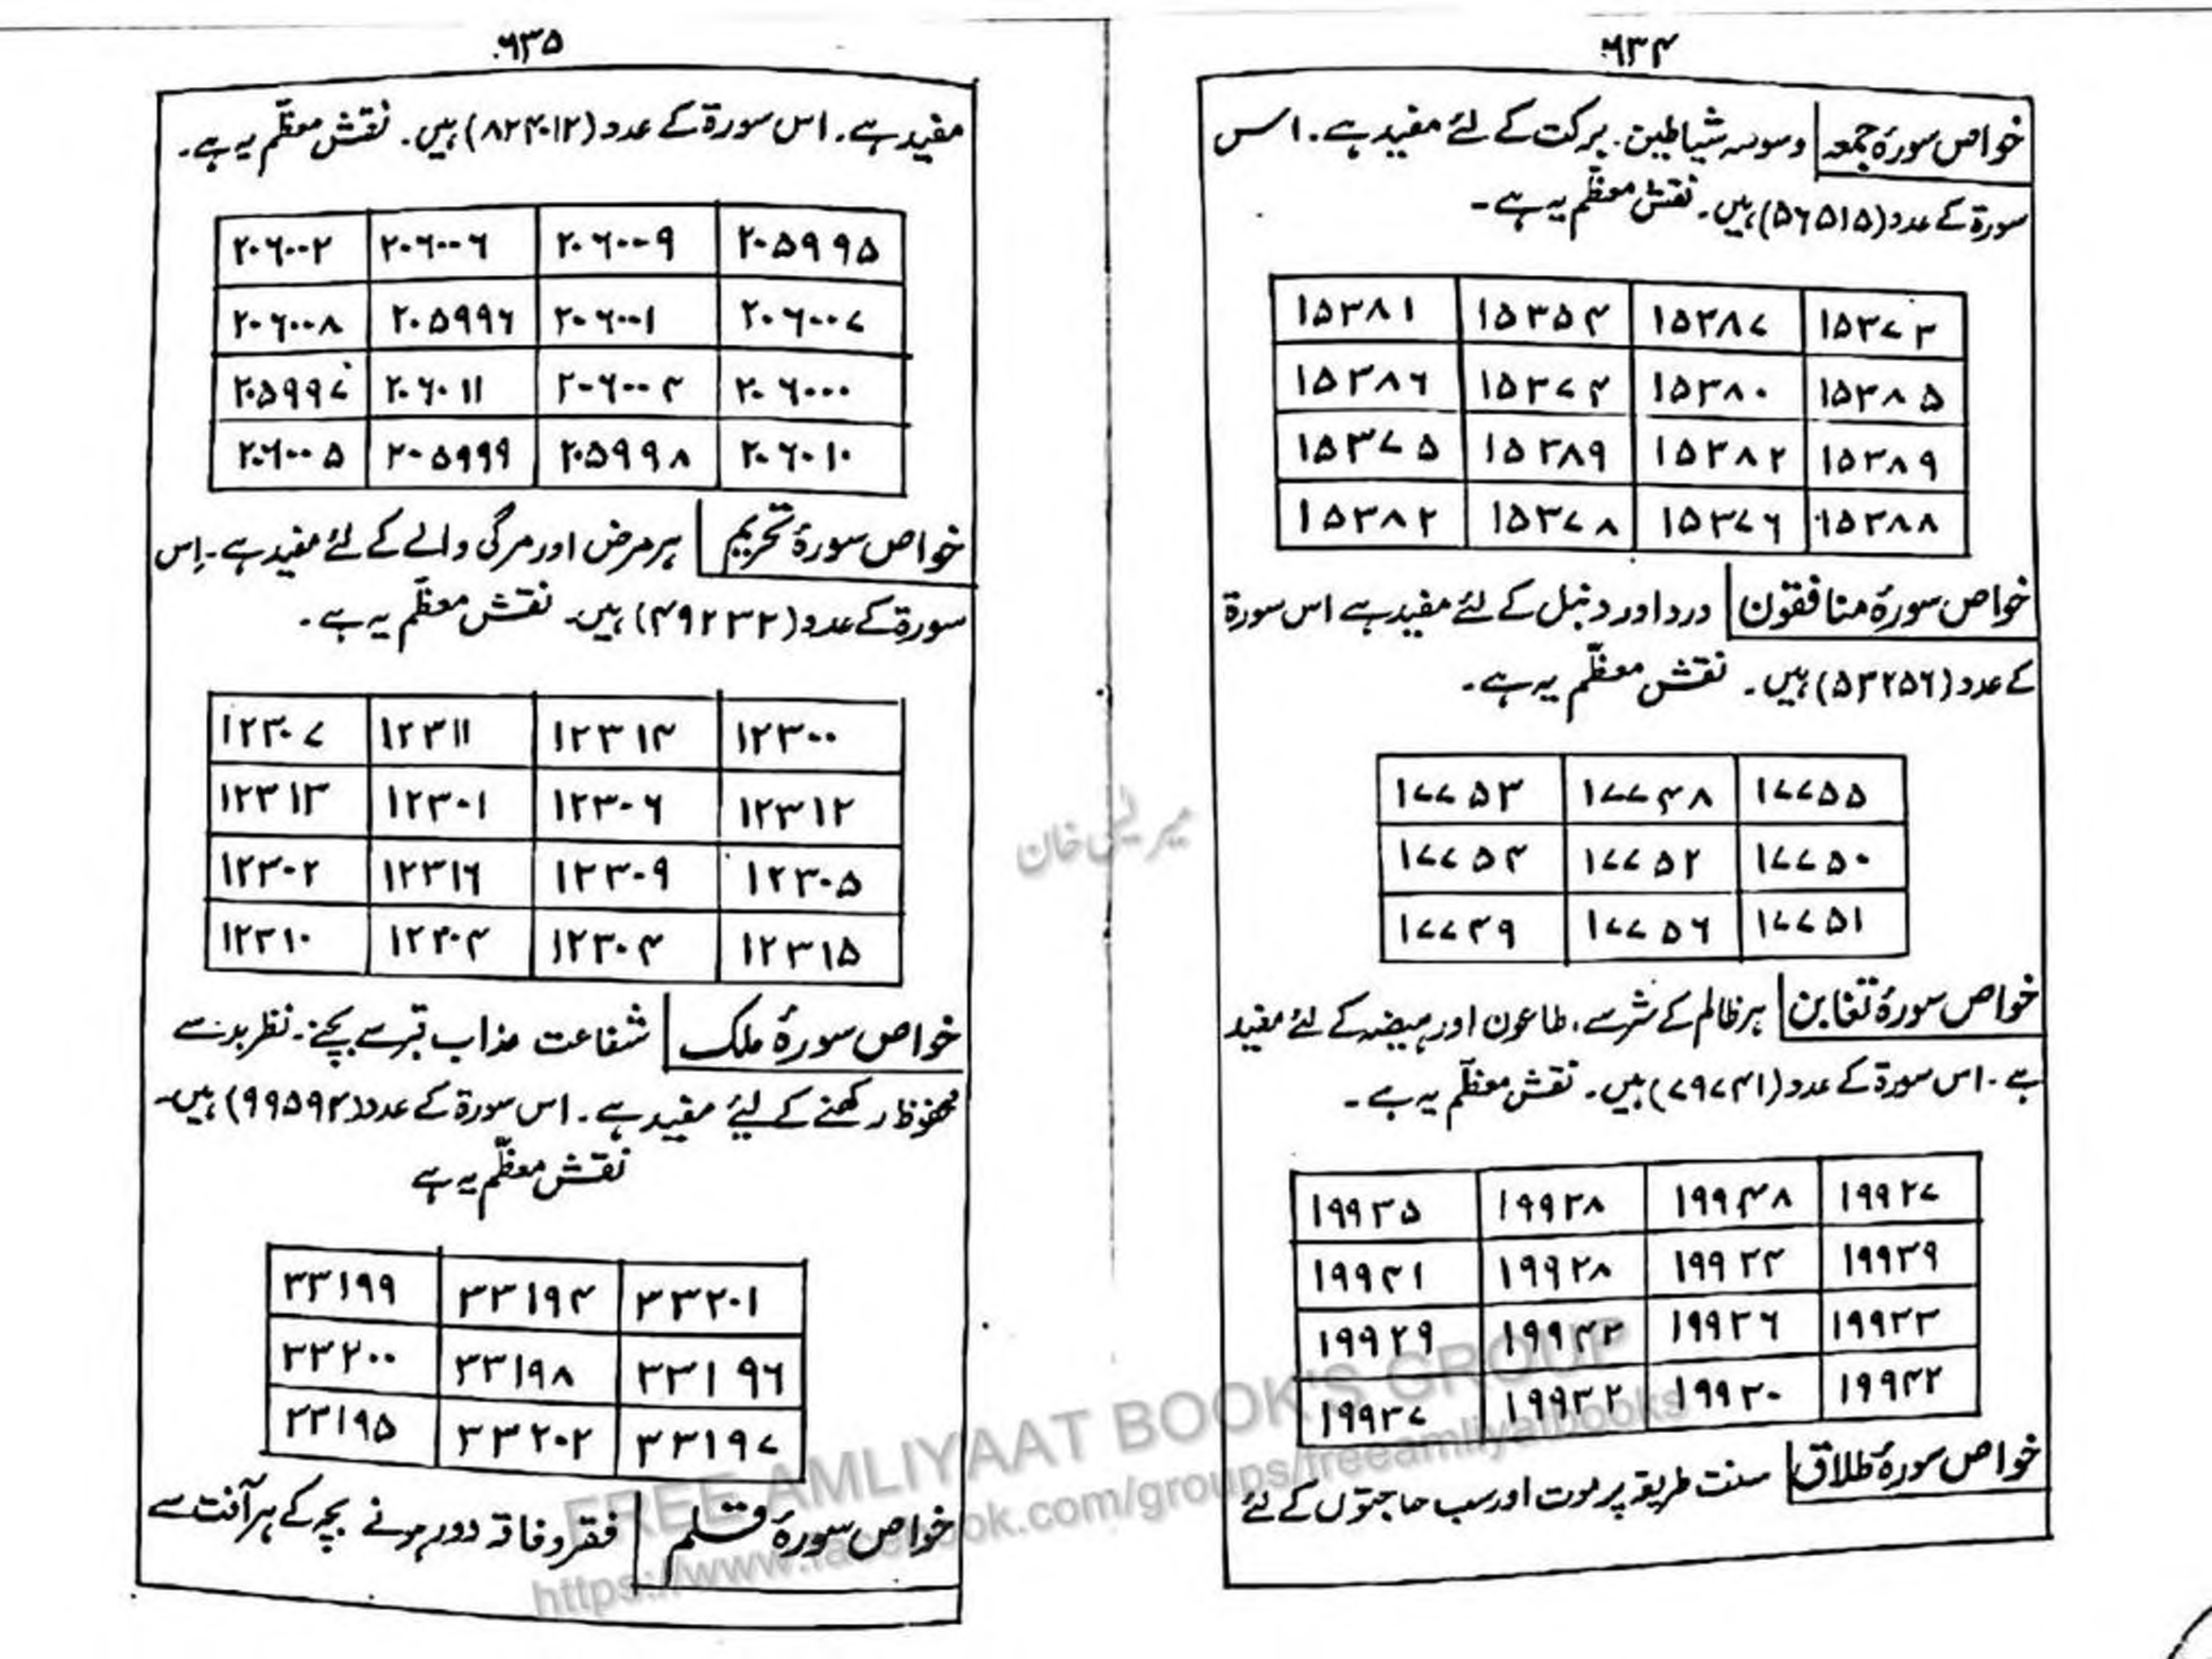 ۶۳۴
خواص سورۂ جمعہ وسوسہ شیاطین۔ برکت کے لئے مفید ہے۔ اس
سورۃ کے عدد (۵۶۵۱۵) ہیں۔ نقش معظّم یہ ہے۔
۱۵۳۸۱ ۱۵۳۵۴ ۱۵۳۸۷ ۱۵۳۷۳
۱۵۳۸۶ ۱۵۳۷۴ ۱۵۳۸۰ ۱۵۳۸۵
۱۵۳۷۵ ۱۵۳۸۹ ۱۵۳۸۲ ۱۵۳۸۹
۱۵۳۸۲ ۱۵۳۷۸ ۱۵۳۷۶ ۱۵۳۸۸
خواص سورۂ منافقون درد اور دنبل کے لئے مفید ہے اس سورۃ
کے عدد (۵۳۲۵۶) ہیں۔ نقش معظّم یہ ہے۔
۱۷۷۵۳ ۱۷۷۴۸ ۱۷۷۵۵
۱۷۷۵۴ ۱۷۷۵۲ ۱۷۷۵۰
۱۷۷۴۹ ۱۷۷۵۶ ۱۷۷۵۱
خواص سورۂ تغابن ہر ظالم کے شر سے، طاعون اور ہیضہ کے لئے مفید
ہے۔ اس سورۃ کے عدد (۷۹۷۴۱) ہیں۔ نقش معظّم یہ ہے۔
۱۹۹۳۵ ۱۹۹۳۸ ۱۹۹۴۸ ۱۹۹۲۷
۱۹۹۴۱ ۱۹۹۲۸ ۱۹۹۳۴ ۱۹۹۳۹
۱۹۹۲۹ ۱۹۹۴۳ ۱۹۹۳۶ ۱۹۹۳۳
۱۹۹۳۷ ۱۹۹۳۲ ۱۹۹۳۰ ۱۹۹۴۲
خواص سورۂ طلاق سنت طریقہ پر موت اور سب حاجتوں کے لئے
۶۳۵
مفید ہے۔ اس سورۃ کے عدد (۸۲۴۰۱۲) ہیں۔ نقش معظّم یہ ہے۔
۲۰۶۰۰۲ ۲۰۶۰۰۶ ۲۰۶۰۰۹ ۲۰۵۹۹۵
۲۰۶۰۰۸ ۲۰۵۹۹۶ ۲۰۶۰۰۱ ۲۰۶۰۰۷
۲۰۵۹۹۷ ۲۰۶۰۱۱ ۲۰۶۰۰۴ ۲۰۶۰۰۰
۲۰۶۰۰۵ ۲۰۵۹۹۹ ۲۰۵۹۹۸ ۲۰۶۰۱۰
خواص سورۂ تحریم ہر مرض اور مرگی والے کے لئے مفید ہے۔ اِس
سورۃ کے عدد (۴۹۲۳۲) ہیں۔ نقش معظّم یہ ہے۔
۱۲۳۰۷ ۱۲۳۱۱ ۱۲۳۱۴ ۱۲۳۰۰
۱۲۳۱۳ ۱۲۳۰۱ ۱۲۳۰۶ ۱۲۳۱۲
۱۲۳۰۲ ۱۲۳۱۶ ۱۲۳۰۹ ۱۲۳۰۵
۱۲۳۱۰ ۱۲۳۰۴ ۱۲۳۰۴ ۱۲۳۱۵
خواص سورۂ ملک شفاعت عذاب قبر سے بچنے۔ نظر بد سے
محفوظ رکھنے کے لیئے مفید ہے۔ اس سورۃ کے عدد (۹۹۵۹۲) ہیں۔
نقش معظّم یہ ہے
۳۳۱۹۹ ۳۳۱۹۴ ۳۳۲۰۱
۳۳۲۰۰ ۳۳۱۹۸ ۳۳۱۹۶
۳۳۱۹۵ ۳۳۲۰۲ ۳۳۱۹۷
خواص سورۂ قلم فقر و فاقہ دور ہونے بچہ کے ہر آفت سے
FREE AMLIYAAT BOOK'S GROUP
https://www.facebook.com/groups/freeamliyatbooks